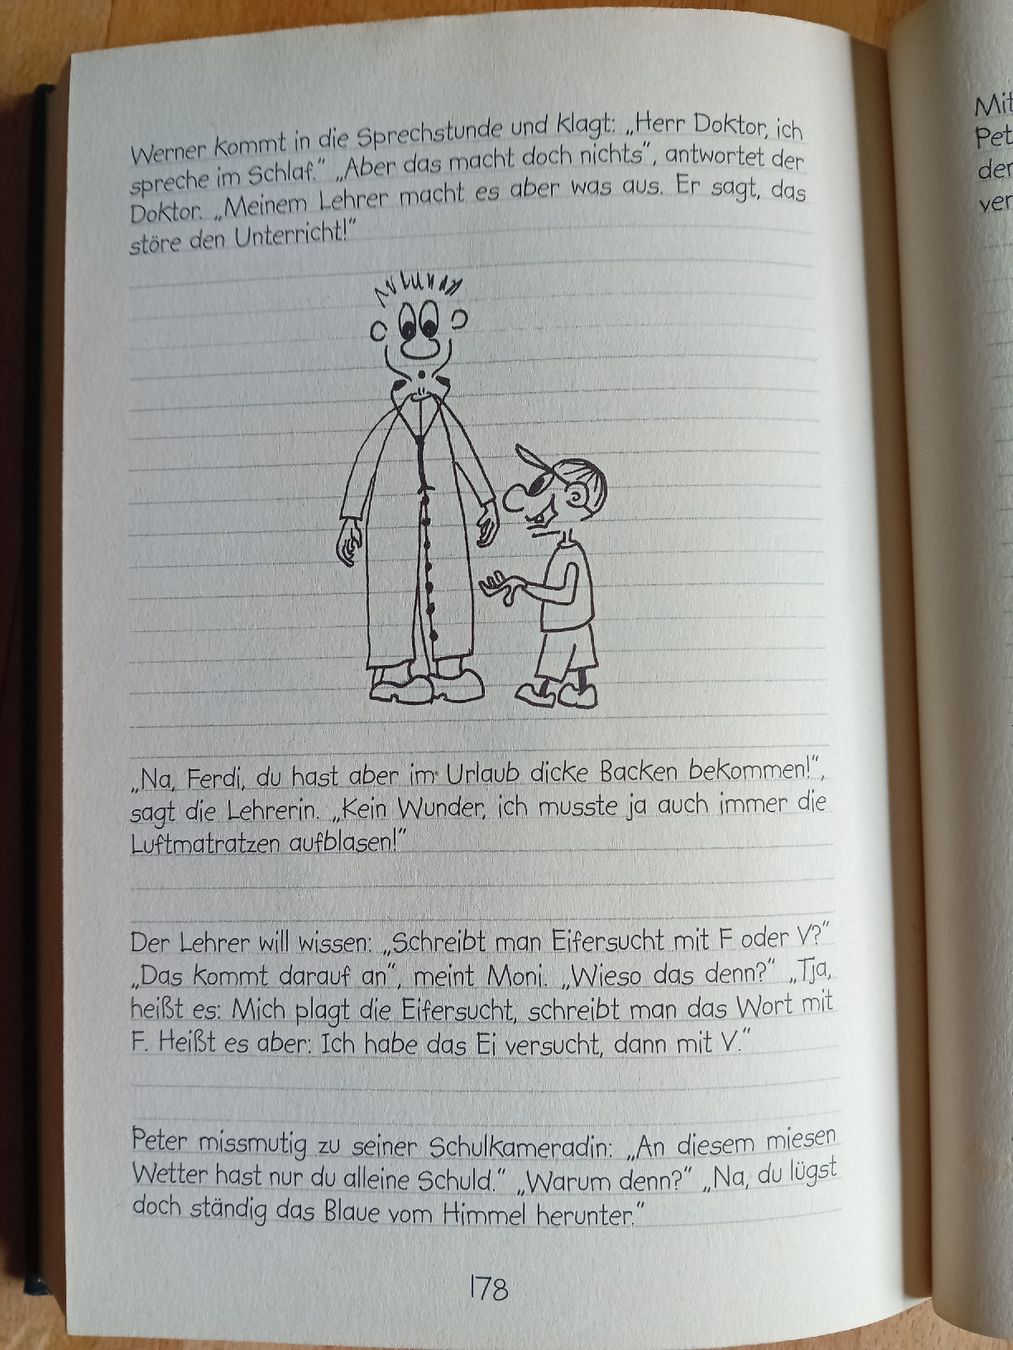 Werner kommt in die Sprechstunde und klagt: „Herr Doktor, ich
spreche im Schlaf.“ „Aber das macht doch nichts“, antwortet der
Doktor. „Meinem Lehrer macht es aber was aus. Er sagt, das
störe den Unterricht!“
„Na, Ferdi, du hast aber im Urlaub dicke Backen bekommen!“,
sagt die Lehrerin. „Kein Wunder, ich musste ja auch immer die
Luftmatratzen aufblasen!“
Der Lehrer will wissen: „Schreibt man Eifersucht mit F oder V?“
„Das kommt darauf an“, meint Moni. „Wieso das denn?“ „Tja,
heißt es: Mich plagt die Eifersucht, schreibt man das Wort mit
F. Heißt es aber: Ich habe das Ei versucht, dann mit V.“
Peter missmutig zu seiner Schulkameradin: „An diesem miesen
Wetter hast nur du alleine Schuld.“ „Warum denn?“ „Na, du lügst
doch ständig das Blaue vom Himmel herunter.“
178
Mit
Pet
der
ver